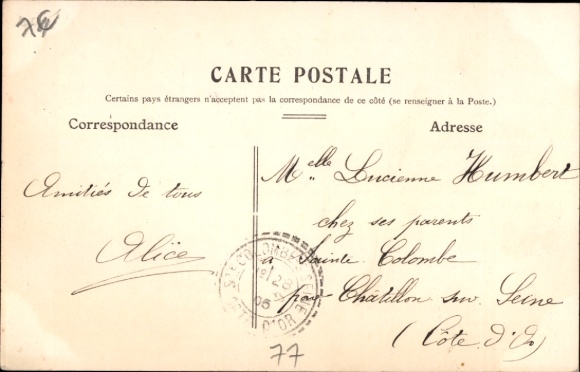 74
CARTE POSTALE
Certains pays étrangers n'acceptent pas la correspondance de ce côté (se renseigner à la Poste.)
Correspondance
Adresse
Amitiés de tous
Alice
Melle Lucienne Humbert
chez ses parents
à Sainte Colombe
par Châtillon sur Seine
(Côte d'Or)
STE COLOMBE S SEINE
28
06
COTE D'OR
77